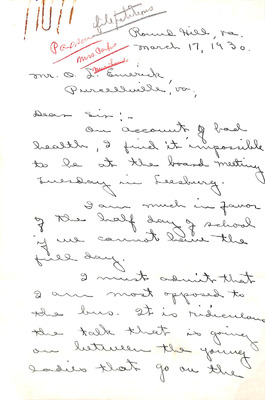 file petitions
Round Hill, Va.
March 17, 1930.
Mr. O. L. Emerick,
Purcellville, Va,
Dear Sir:-
On account of bad
health, I find it impossible
to be at the board meeting
Tuesday in Leesburg.
I am much in favor
of the half day of school
if we cannot have the
full day.
I must admit that
I am most opposed to
the bus. It is ridiculous
the talk that is going
on between the young
ladies that go on the